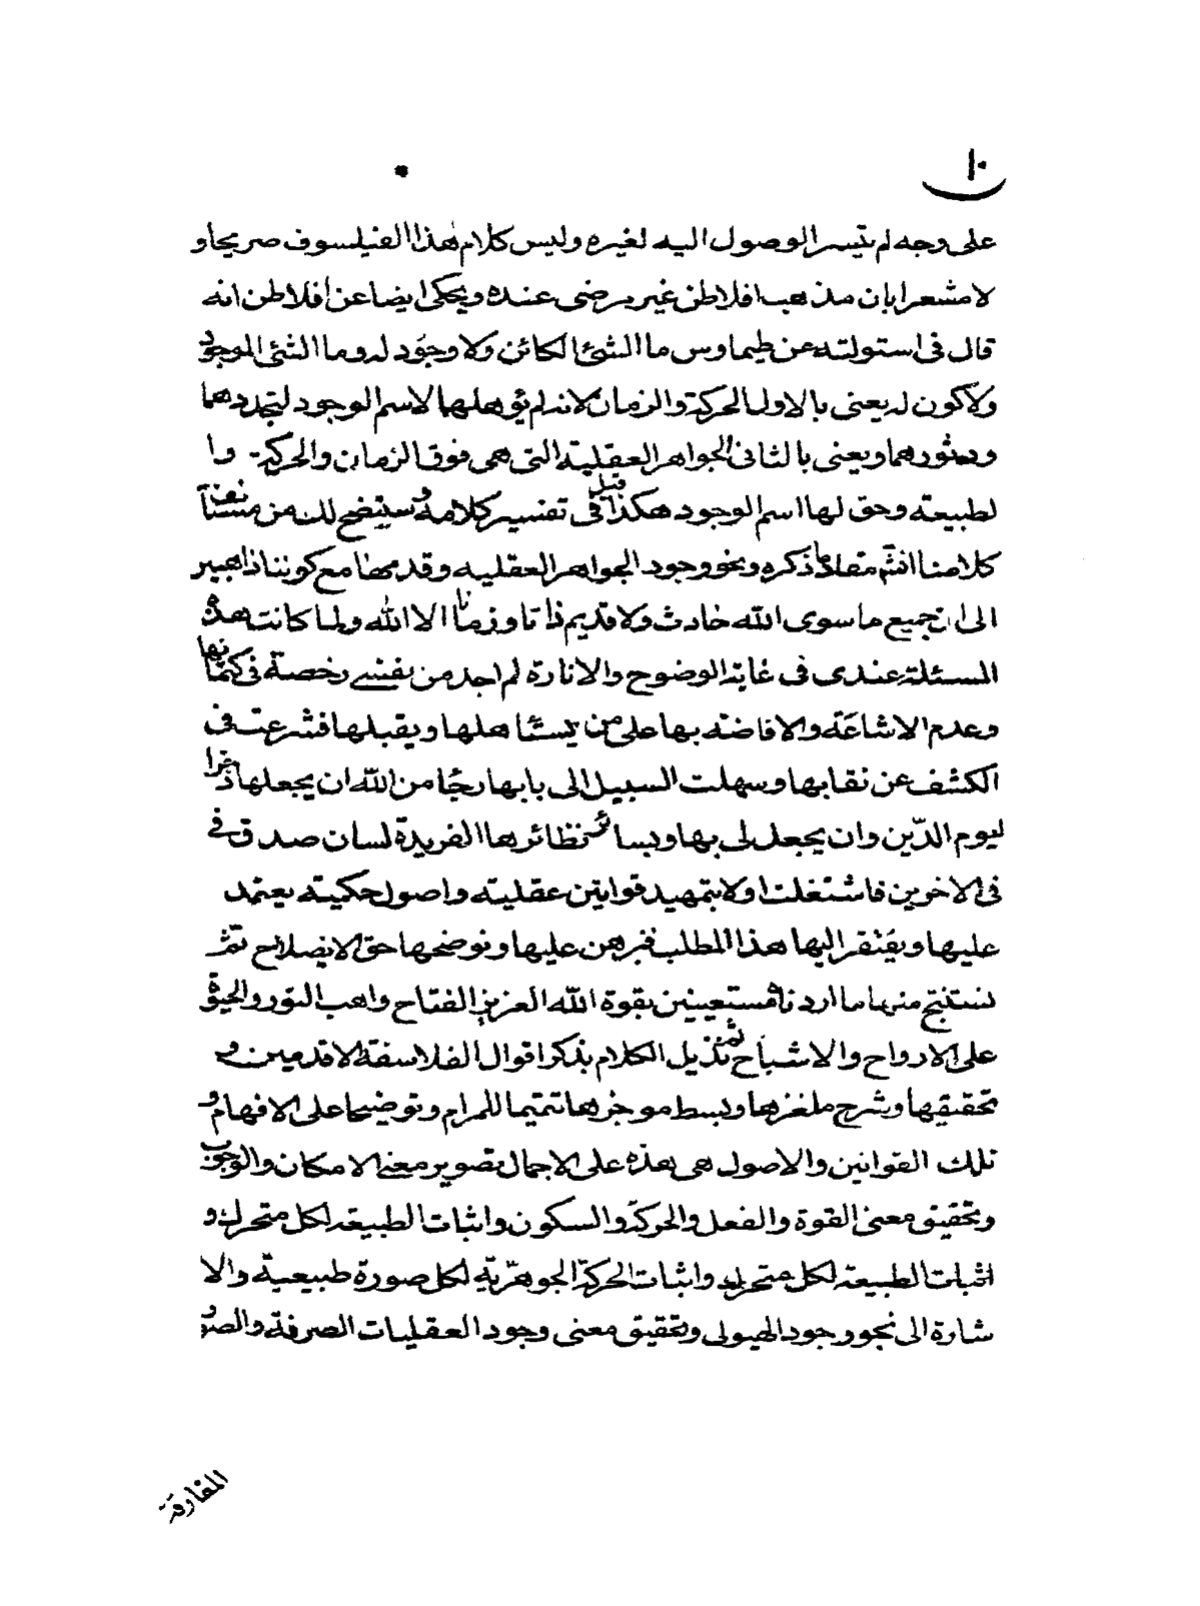 ١٠
على وجه لم يتيسر الوصول اليه لغيره وليس كلام هذا الفيلسوف صريحا و
لا مشعرا بان مذهب افلاطن غير مرضى عنده ويحكى ايضا عن افلاطن انه
قال فى اسئولته عن طيماوس ما الشئ الكائن ولا وجود له وما الشئ الموجود
ولا كون له يعنى بالاول الحركة والزمان لانه لم يؤهلهما لاسم الوجود لتجددهما
ودثورهما ويعنى بالثانى الجواهر العقلية التى هى فوق الزمان والحركة وا
لطبيعة وحق لها اسم الوجود هكذا قيل فى تفسير كلامه و سيتضح لك من مستأنف
كلامنا انشٓ مفاد ما ذكره ونحو وجود الجواهر العقليه وقدمها مع كوننا ذاهبين
الى ان جميع ما سوى الله حادث ولا قديم ذاتا وزمانا الا الله ولما كانت هذه
المسئلة عندى فى غاية الوضوح والانارة لم اجد من نفسى رخصة فى كتمانها
وعدم الاشاعة والافاضة بها على من يستاهلها ويقبلها فشرعت فى
الكشف عن نقابها وسهلت السبيل الى بابها رجًا من الله ان يجعلها ذخرا
ليوم الدّين وان يجعل لى بها وبسائر نظائرها الفريدة لسان صدق فى
فى الاخرين فاشتغلت اولا بتمهيد قوانين عقلية واصول حكمية يعتمد
عليها ويفتقر اليها هذا المطلب فبرهن عليها ونوضحها حق الايضلاح ثمّ
نستنتج منها ما اردناه مستعينين بقوة الله العزيز الفتاح واهب النور والحيوة
على الارواح والاشباح ثم نذيل الكلام بذكر اقوال الفلاسفة الاقدمين و
تحقيقها وشرح ملغزها وبسط موجزها تتميما للمرام وتوضيحا على الافهام و
تلك القوانين والاصول هى هذه على الاجمال تصوير معنى الامكان والوجوب
وتحقيق معنى القوة والفعل والحركة والسكون واثبات الطبيعه لكل متحرك و
اثبات الطبيعة لكل متحرك واثبات الحركة الجوهريّة لكل صورة طبيعية والا
شارة الى نحو وجود الهيولى وتحقيق معنى وجود العقليات الصرفة والصور
المفارقة